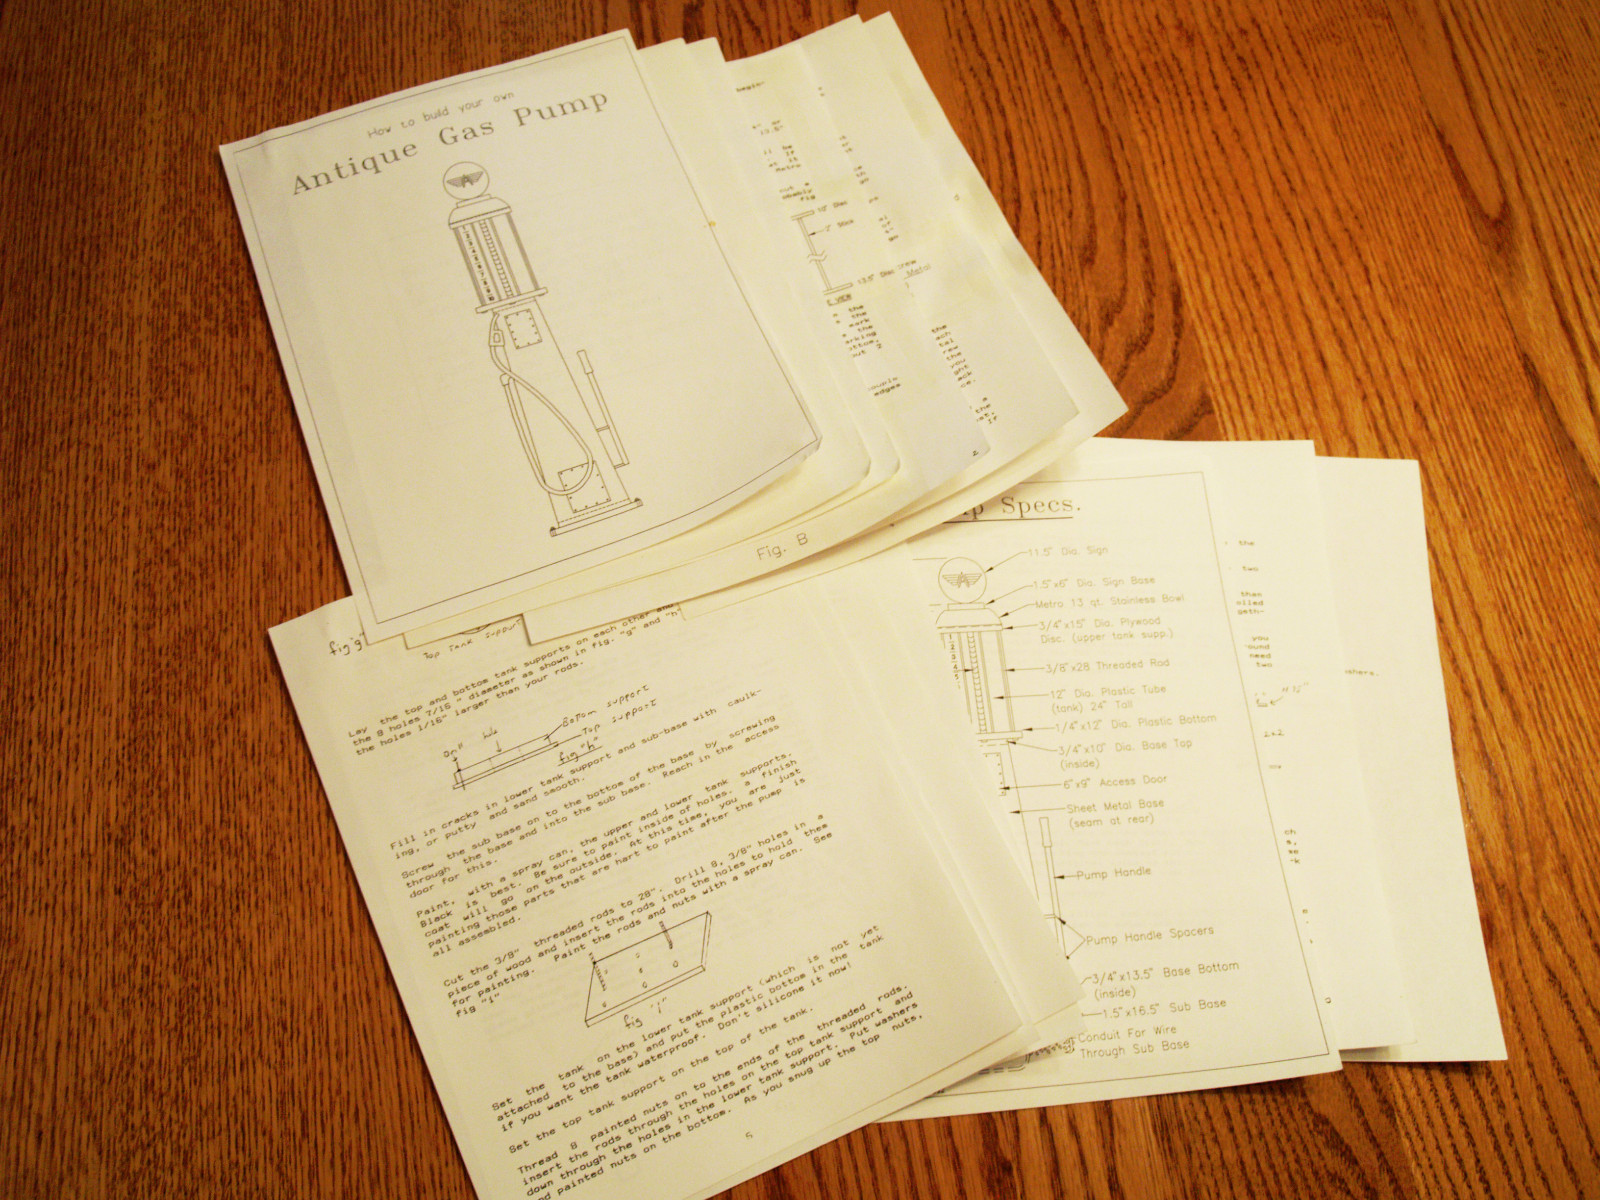 How to build your own
Antique Gas Pump
begin-
10" Disc
2" Stick
13.5" Disc
E VIEW
Metro
Fig. B
p Specs.
11.5" Dia. Sign
1.5"x6" Dia. Sign Base
Metro 13 qt. Stainless Bowl
3/4"x15" Dia. Plywood
Disc. (upper tank supp.)
3/8"x28 Threaded Rod
12" Dia. Plastic Tube
(tank) 24" Tall
1/4"x12" Dia. Plastic Bottom
3/4"x10" Dia. Base Top
(inside)
6"x9" Access Door
Sheet Metal Base
(seam at rear)
Pump Handle
Pump Handle Spacers
3/4"x13.5" Base Bottom
(inside)
1.5"x16.5" Sub Base
Conduit For Wire
Through Sub Base
fig "g"
Top Tank Support
Lay the top and bottom tank supports on each other and
the 8 holes 7/16" diameter as shown in fig. "g" and "h"
the holes 1/16" larger than your rods.
hole
Bottom support
Top support
fig "h"
Fill in cracks in lower tank support and sub-base with caulk-
ing, or putty and sand smooth.
Screw the sub base on to the bottom of the base by screwing
through the base and into the sub base. Reach in the access
door for this.
Paint, with a spray can, the upper and lower tank supports.
Black is best. Be sure to paint inside of holes. a finish
coat will go on the outside. At this time, you are just
painting those parts that are hart to paint after the pump is
all assembled.
Cut the 3/8" threaded rods to 28". Drill 8, 3/8" holes in a
piece of wood and insert the rods into the holes to hold them
for painting. Paint the rods and nuts with a spray can. See
fig "i"
fig "i"
Set the tank on the lower tank support (which is not yet
attached to the base) and put the plastic bottom in the tank
if you want the tank waterproof. Don't silicone it now!
Set the top tank support on the top of the tank.
Thread 8 painted nuts on to the ends of the threaded rods.
insert the rods through the holes on the top tank support and
down through the holes in the lower tank support. Put washers
and painted nuts on the bottom. As you snug up the top nuts,
5